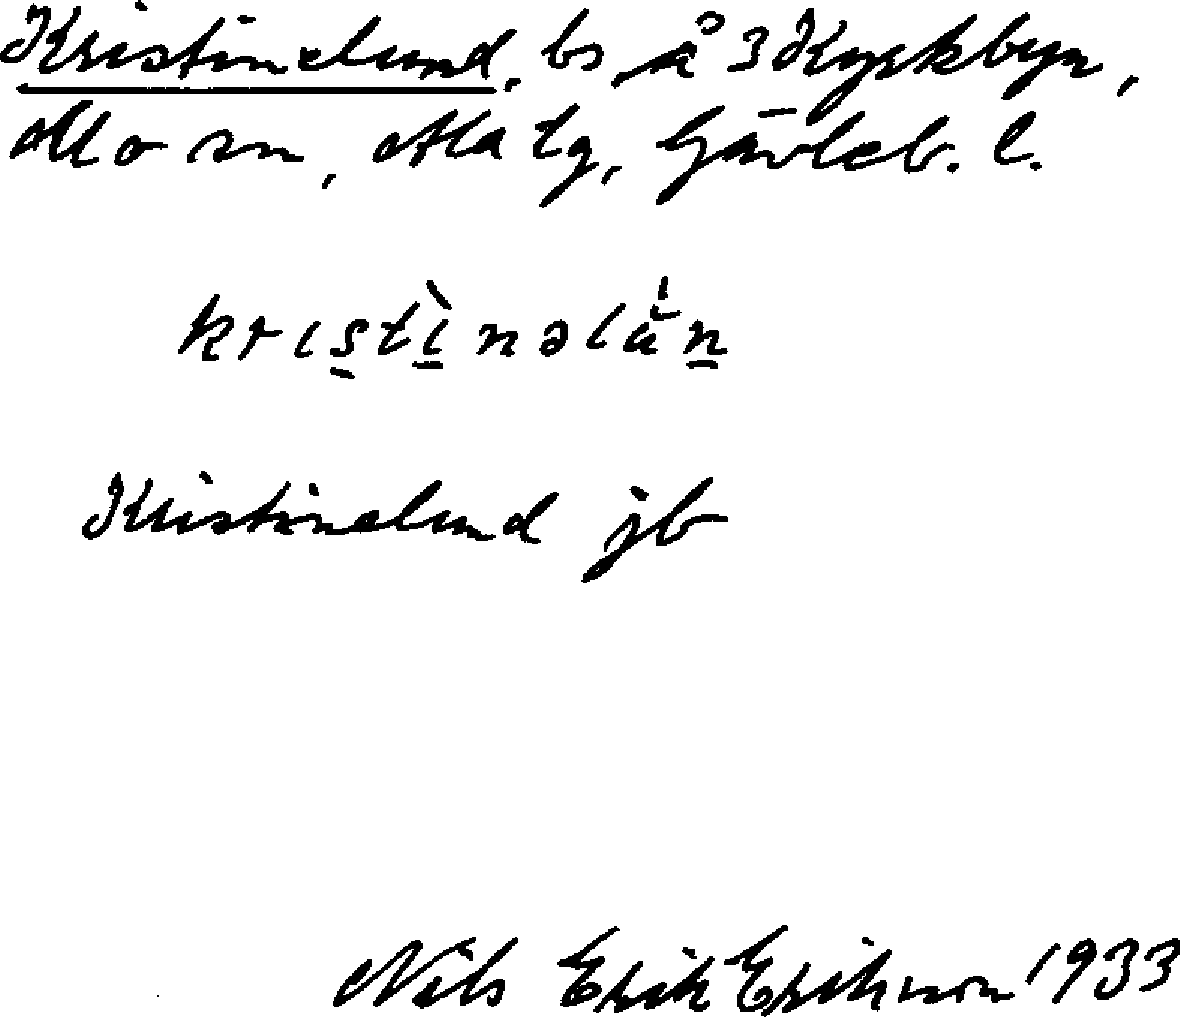 Kristinelund, bs å 3 Kyrkbyn,
Mo sn, Ala tg, Gävleb. l.
krıs̱tı̱̀nəlåṉ
Kristinelund jb
Nils Erik Erikson 1933